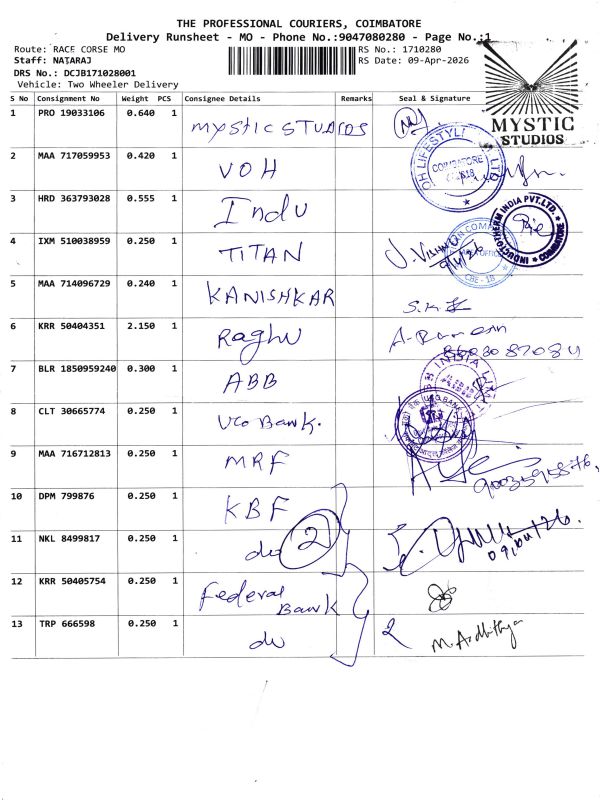 THE PROFESSIONAL COURIERS, COIMBATORE
Delivery Runsheet - MO - Phone No.:9047080280 - Page No.:1
Route: RACE CORSE MO
RS No.: 1710280
Staff: NATARAJ
RS Date: 09-Apr-2026
DRS No.: DCJB171028001
Vehicle: Two Wheeler Delivery
MYSTIC STUDIOS
S No Consignment No Weight PCS Consignee Details Remarks Seal & Signature
1 PRO 19033106 0.640 1 MYSTIC STUDIOS
2 MAA 717059953 0.420 1 VOH
COIMBATORE
3 HRD 363793028 0.555 1 Indu
INDUCTOTHERM INDIA PVT.LTD. COIMBATORE
4 IXM 510038959 0.250 1 TITAN
CBE - 18
5 MAA 714096729 0.240 1 KANISHKAR
6 KRR 50404351 2.150 1 Raghu
7 BLR 1850959240 0.300 1 ABB
8 CLT 30665774 0.250 1 Uco Bank.
9 MAA 716712813 0.250 1 MRF
10 DPM 799876 0.250 1 KBF
11 NKL 8499817 0.250 1 do 2
09/04/26.
12 KRR 50405754 0.250 1 Federal Bank
13 TRP 666598 0.250 1 do 2